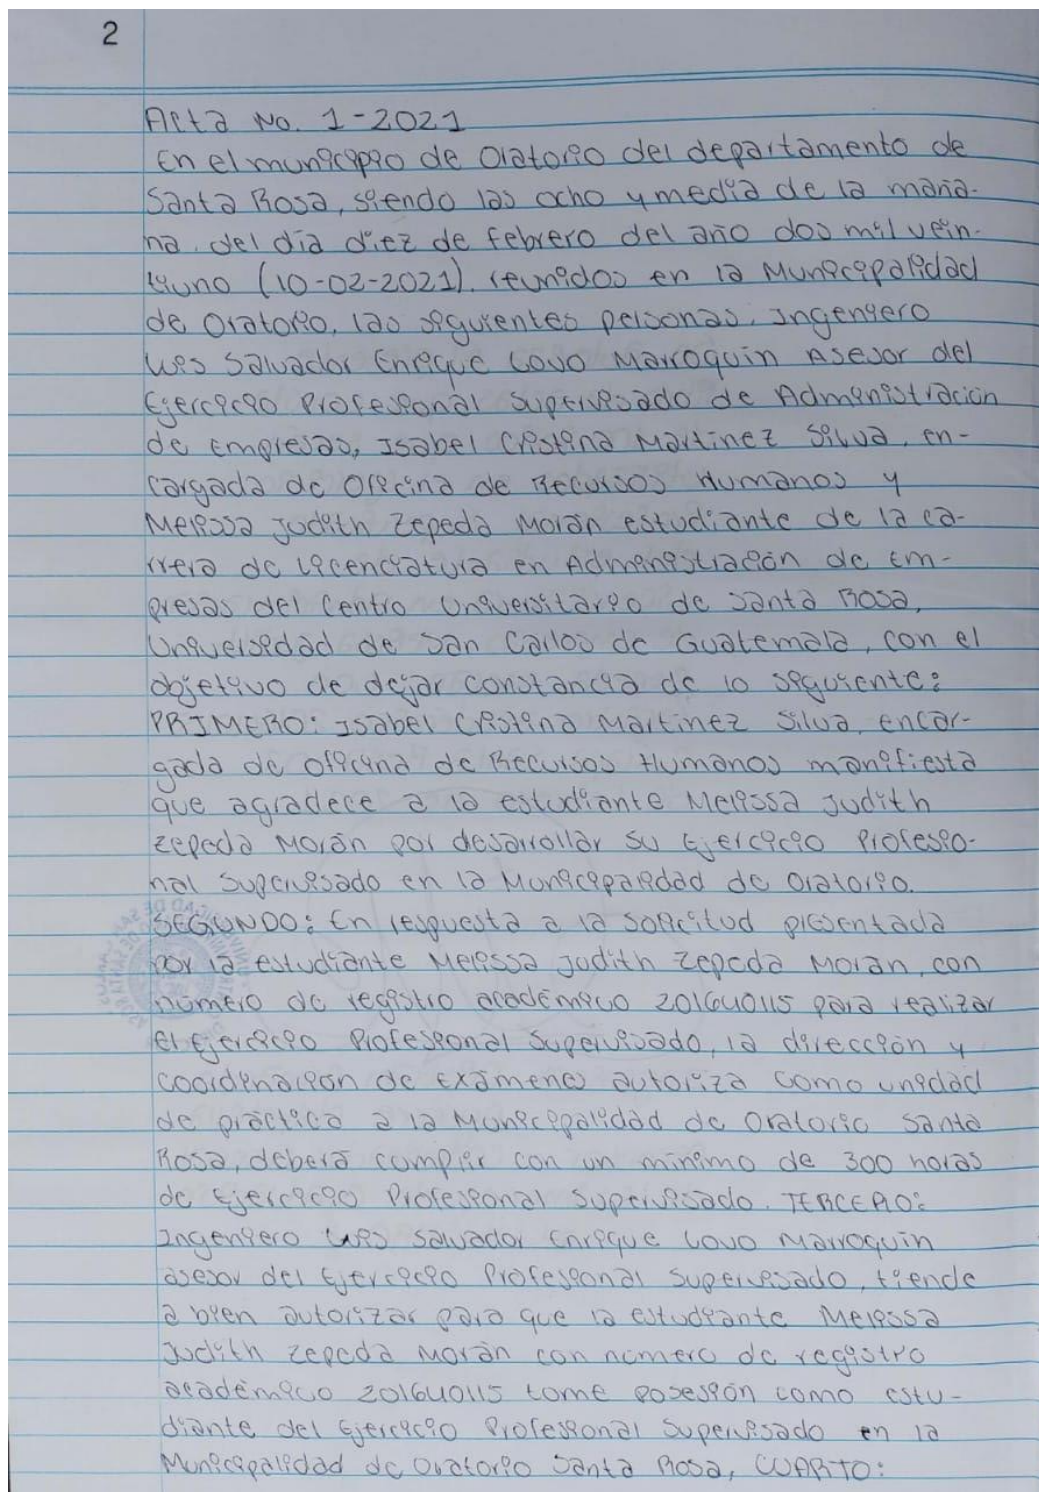 2
Acta No. 1-2021
En el municipio de Oratorio del departamento de
Santa Rosa, siendo las ocho y media de la maña-
na, del día diez de febrero del año dos mil vein-
tiuno (10-02-2021), reunidos en la Municipalidad
de Oratorio, las siguientes personas, Ingeniero
Luis Salvador Enrique Lovo Marroquín Asesor del
Ejercicio Profesional Supervisado de Administración
de Empresas, Isabel Cristina Martinez Silva, en-
cargada de Oficina de Recursos Humanos y
Melissa Judith Zepeda Morán estudiante de la ca-
rrera de Licenciatura en Administración de Em-
presas del Centro Universitario de Santa Rosa,
Universidad de San Carlos de Guatemala, con el
objetivo de dejar constancia de lo siguiente:
PRIMERO: Isabel Cristina Martinez Silva, encar-
gada de oficina de Recursos Humanos manifiesta
que agradece a la estudiante Melissa Judith
Zepeda Morán por desarrollar su Ejercicio Profesio-
nal Supervisado en la Municipalidad de Oratorio.
SEGUNDO: En respuesta a la solicitud presentada
por la estudiante Melissa Judith Zepeda Morán, con
número de registro académico 201640115 para realizar
el Ejercicio Profesional Supervisado, la dirección y
coordinación de Exámenes autoriza como unidad
de práctica a la Municipalidad de Oratorio Santa
Rosa, deberá cumplir con un mínimo de 300 horas
de Ejercicio Profesional Supervisado. TERCERO:
Ingeniero Luis Salvador Enrique Lovo Marroquín
asesor del Ejercicio Profesional Supervisado, tiende
a bien autorizar para que la estudiante Melissa
Judith Zepeda Morán con número de registro
académico 201640115 tome posesión como estu-
diante del Ejercicio Profesional Supervisado en la
Municipalidad de Oratorio Santa Rosa, CUARTO: